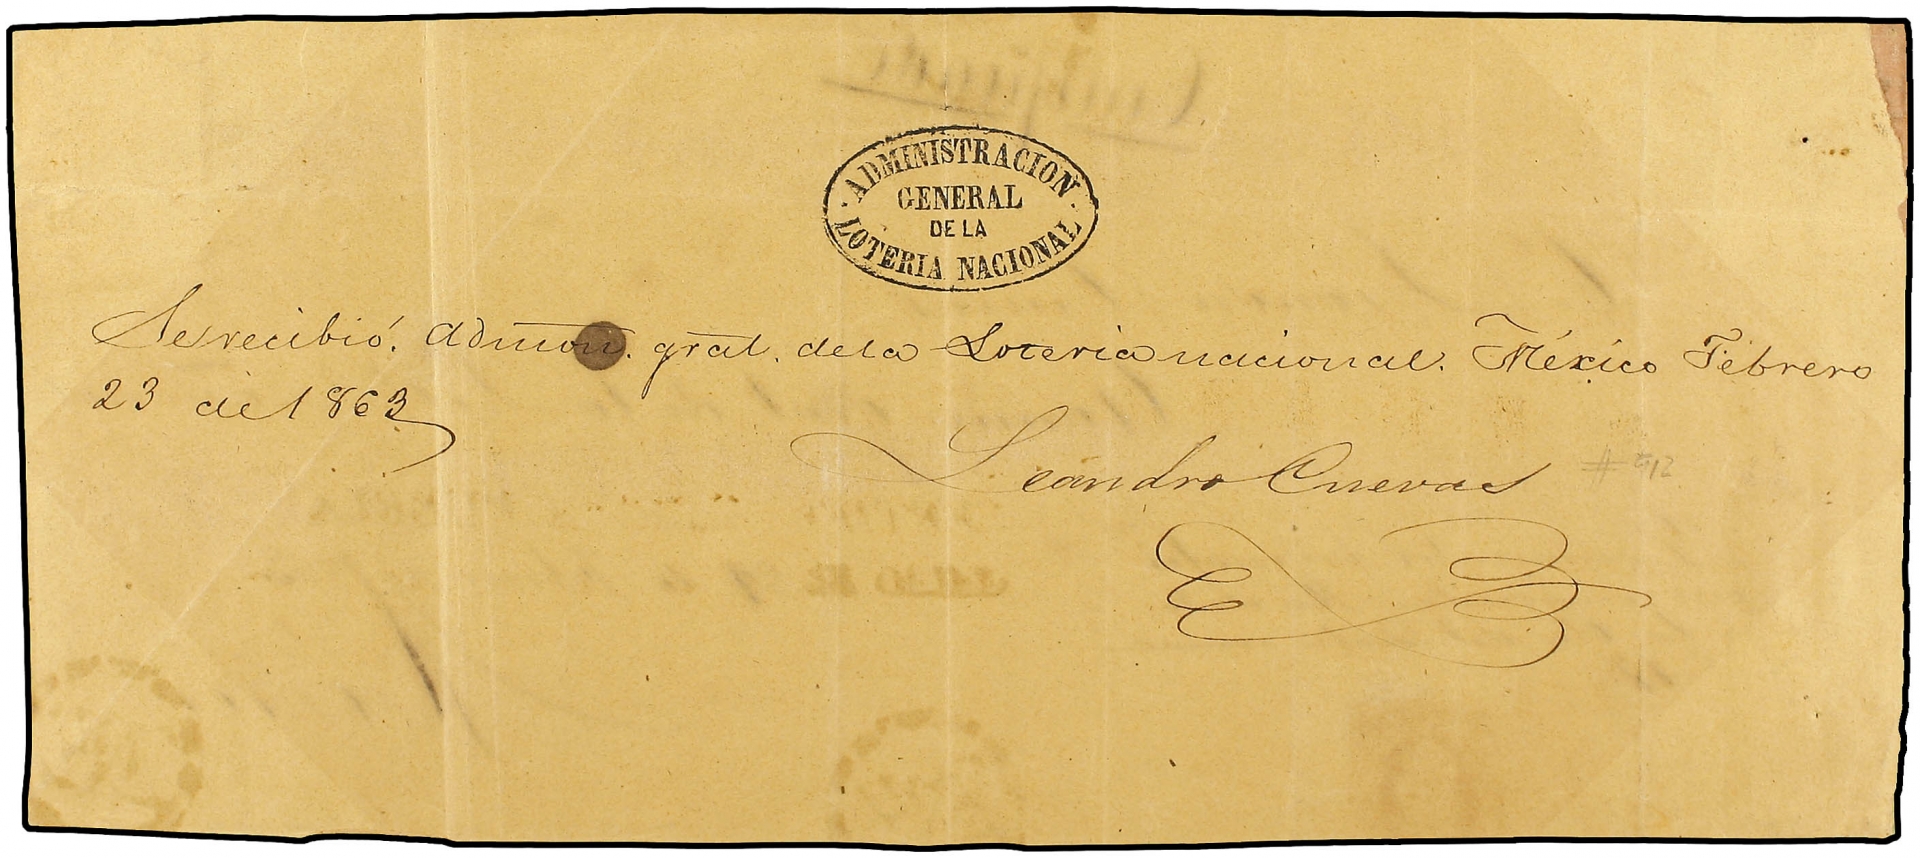 ADMINISTRACION
GENERAL
DE LA
LOTERIA NACIONAL
Se recibió. Admon. gral. de la Loteria nacional. México Febrero
23 de 1863
Leandro Cuevas